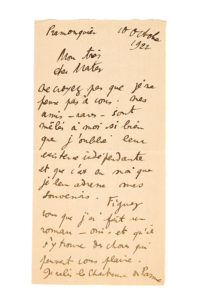 Pramousquier 10 Octobre
1922
Mon très
cher
Ne croyez pas que je ne
pense pas à vous. Mes
amis – rares – sont
mêlés à moi si bien
que j'oublie leur
existence indépendante
et que c'est en moi que
je leur adresse mes
souvenirs. Figurez
vous que j'ai fait un
roman – oui – et qu'il
s'y trouve des choses qui
peuvent vous plaire.
Je relis la Chartreuse de Parme